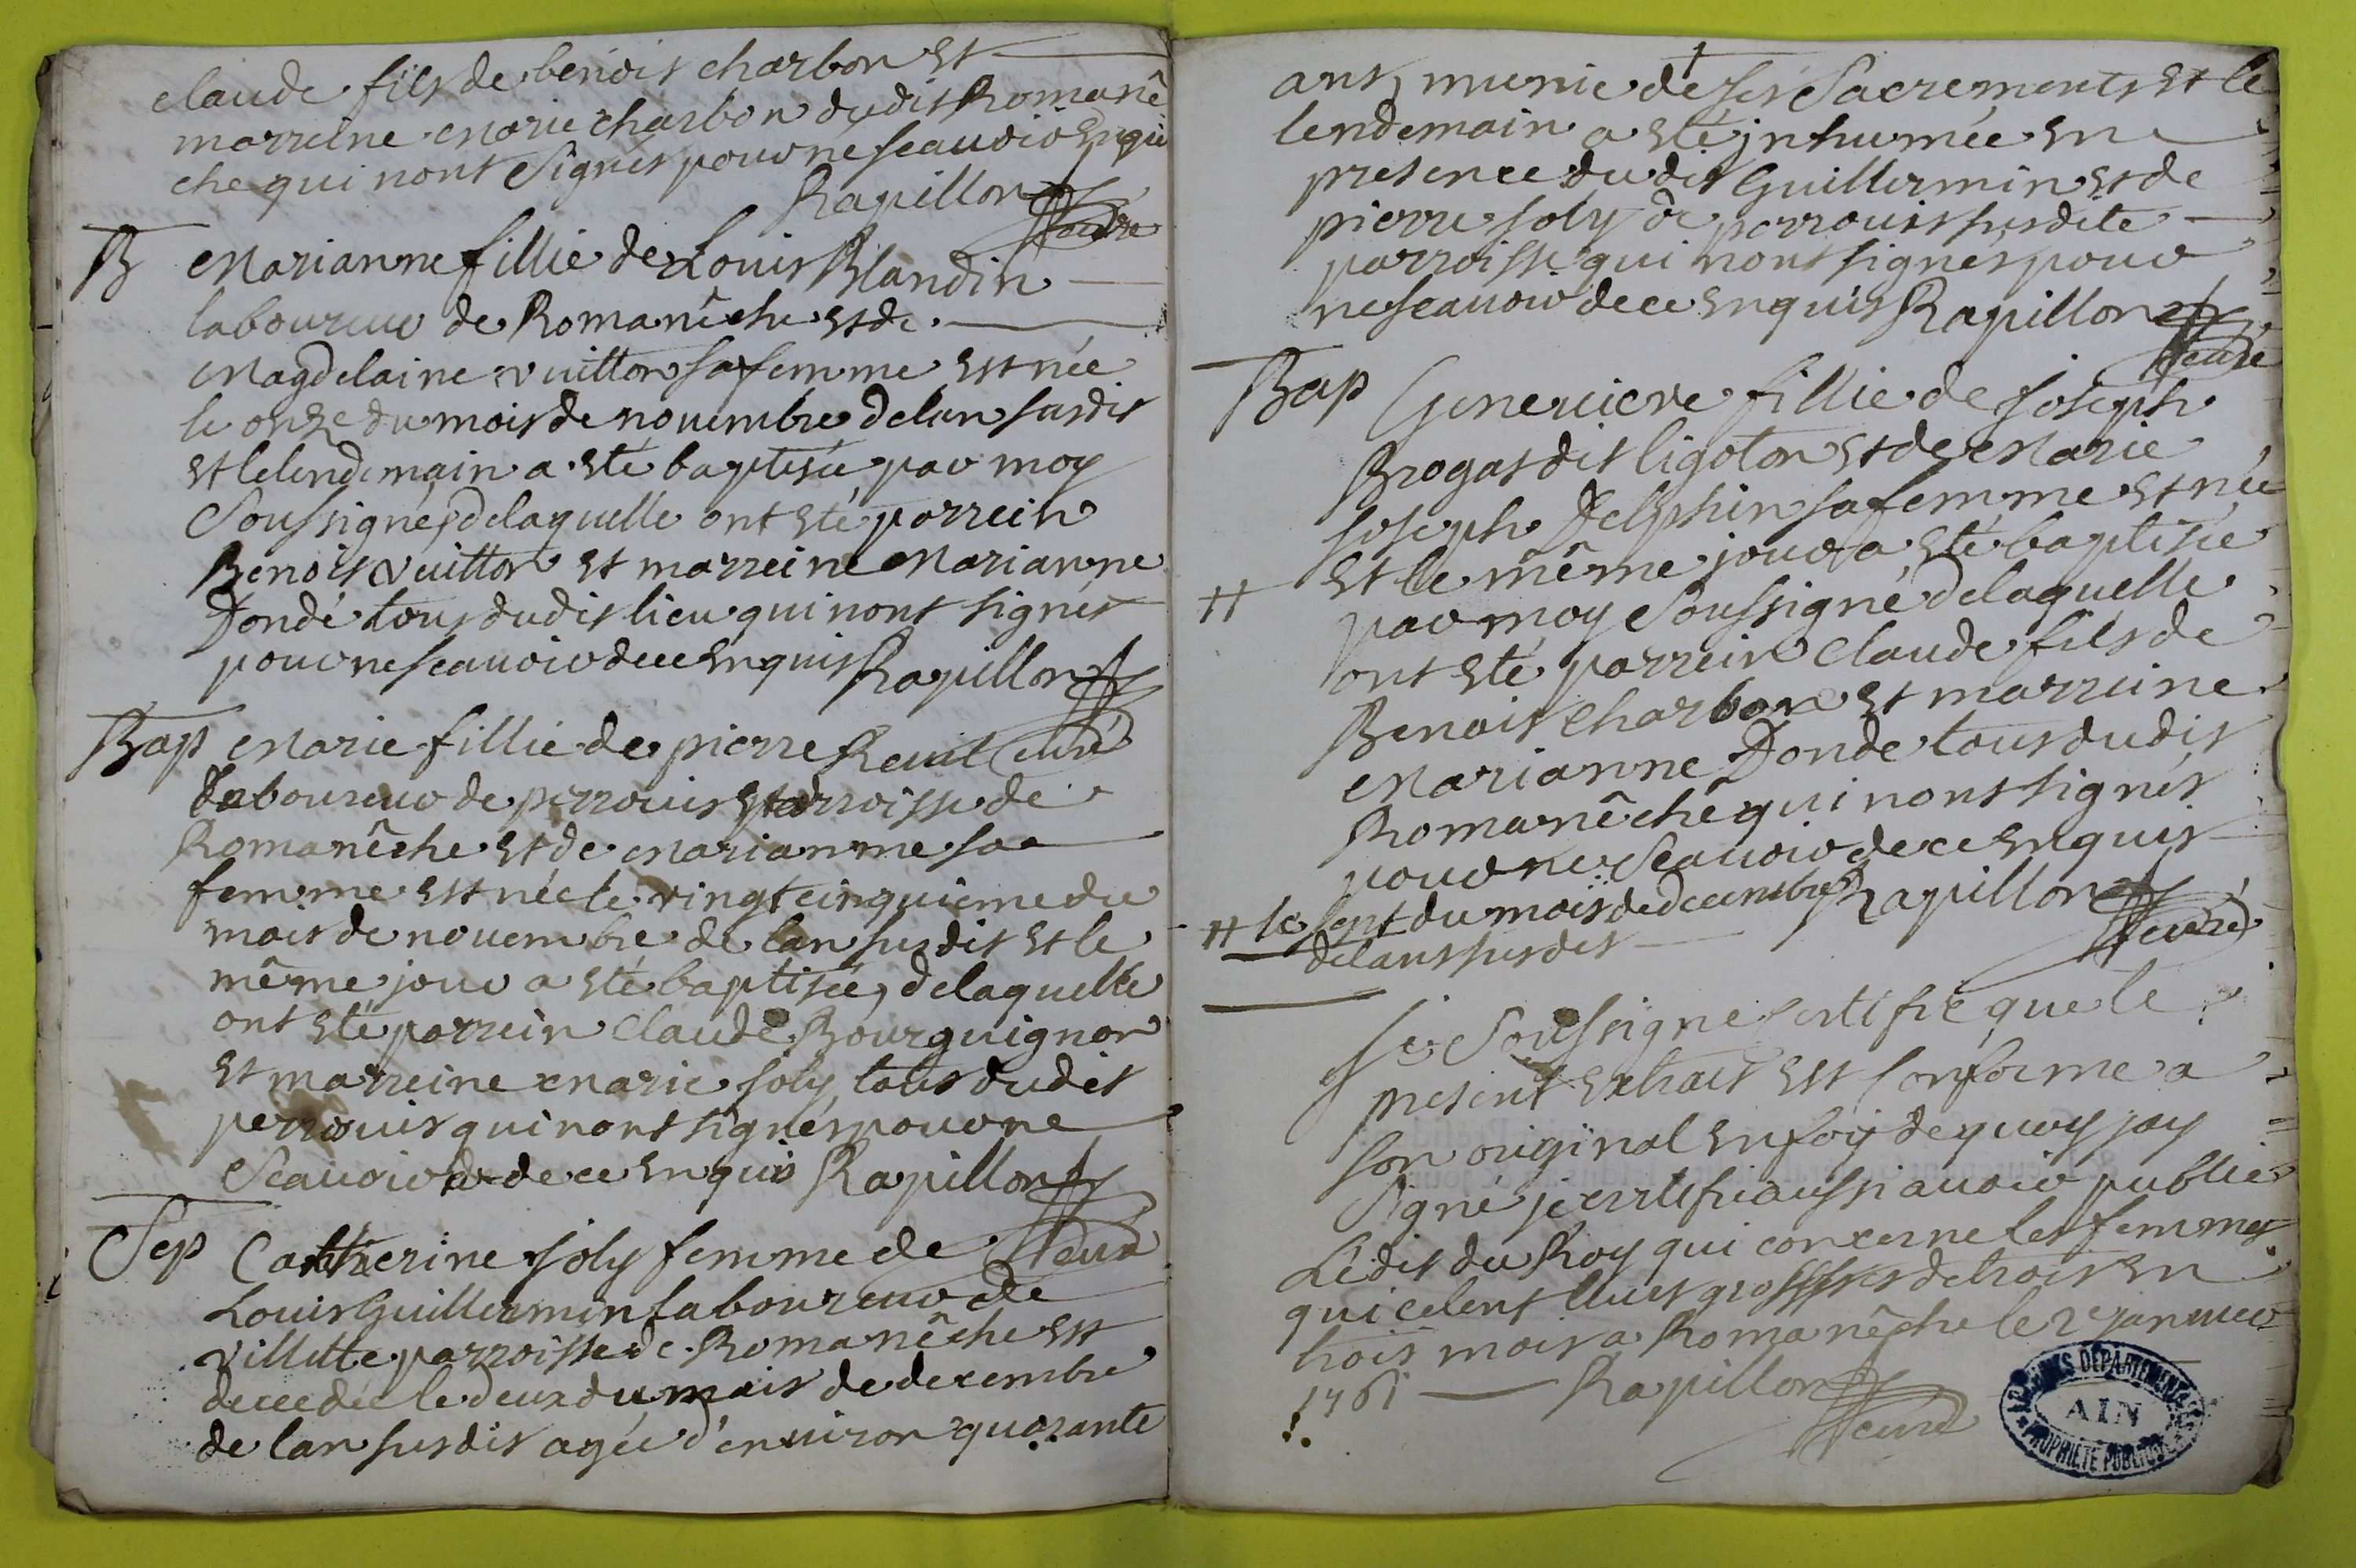 claude fils de benoit charbon et
marreine marie charbon dudit Romanê
che qui nont signés pour ne scauoir enquis
Rapillon
curé
B Marianne fillie de Louis Blandin
laboureur de Romanêche et de
Magdelaine vuitton sa femme est née
le onze du mois de nouembre de lan susdit
et le lendemain a été baptisée par moy
Soussigné, de laquelle ont été parrein
Benoit vuitton et marreine Marianne
Dondé tous dudit lieu qui nont signés
pour ne scauoir de ce enquis Rapillon
curé
Bap Marie fillie de pierre Reuil
laboureur de perrouis parroisse de
Romanêche et de marianne sa
femme est née le vingt cinquieme du
mois de nouembre de lan susdit et le
même jour a été baptisée, de laquelle
ont été parrein Claude Bourguignon
et marreine marie joly tous dudit
perrouis qui nont signés pour ne
Scauoir de ce enquis Rapillon
curé
Sep Catherine joly femme de
Louis Guillermin laboureur de
villette parroisse de Romanêche est
decedée le deux du mois de decembre
de lan susdit agée d'enuiron quarante
ans, munie de ses Sacrements et le
lendemain a été jnhumée en
presence dudit Guillermin et de
pierre joly de perrouis susdite
parroisse qui nont signés pour
ne scauoir de ce enquis Rapillon
curé
Bap Geneuieve fillie de joseph
Brogat dit ligoton et de Marie
joseph Delphin sa femme est née
# et le même jour a été baptisée
par moy Soussigné de laquelle
ont été parrein Claude fils de
Benoit charbon et marreine
Marianne Donde tous dudit
Romanêche qui nont signés
pour ne Scauoir de ce enquis
# le sept du mois de decembre Rapillon
de lans susdit curé
je Soussigne certifie que le
present extrait est conforme a
son original en foy de quoy jay
signé je certifie aussi auoir publié
Ledit du Roy qui concerne les femmes
qui celent leurs grossesses de trois en
trois mois a Romanêche le 2 januier
1761 Rapillon
curé
ARCHIVES DEPARTEMENTALES
AIN
PROPRIETE PUBLIQUE